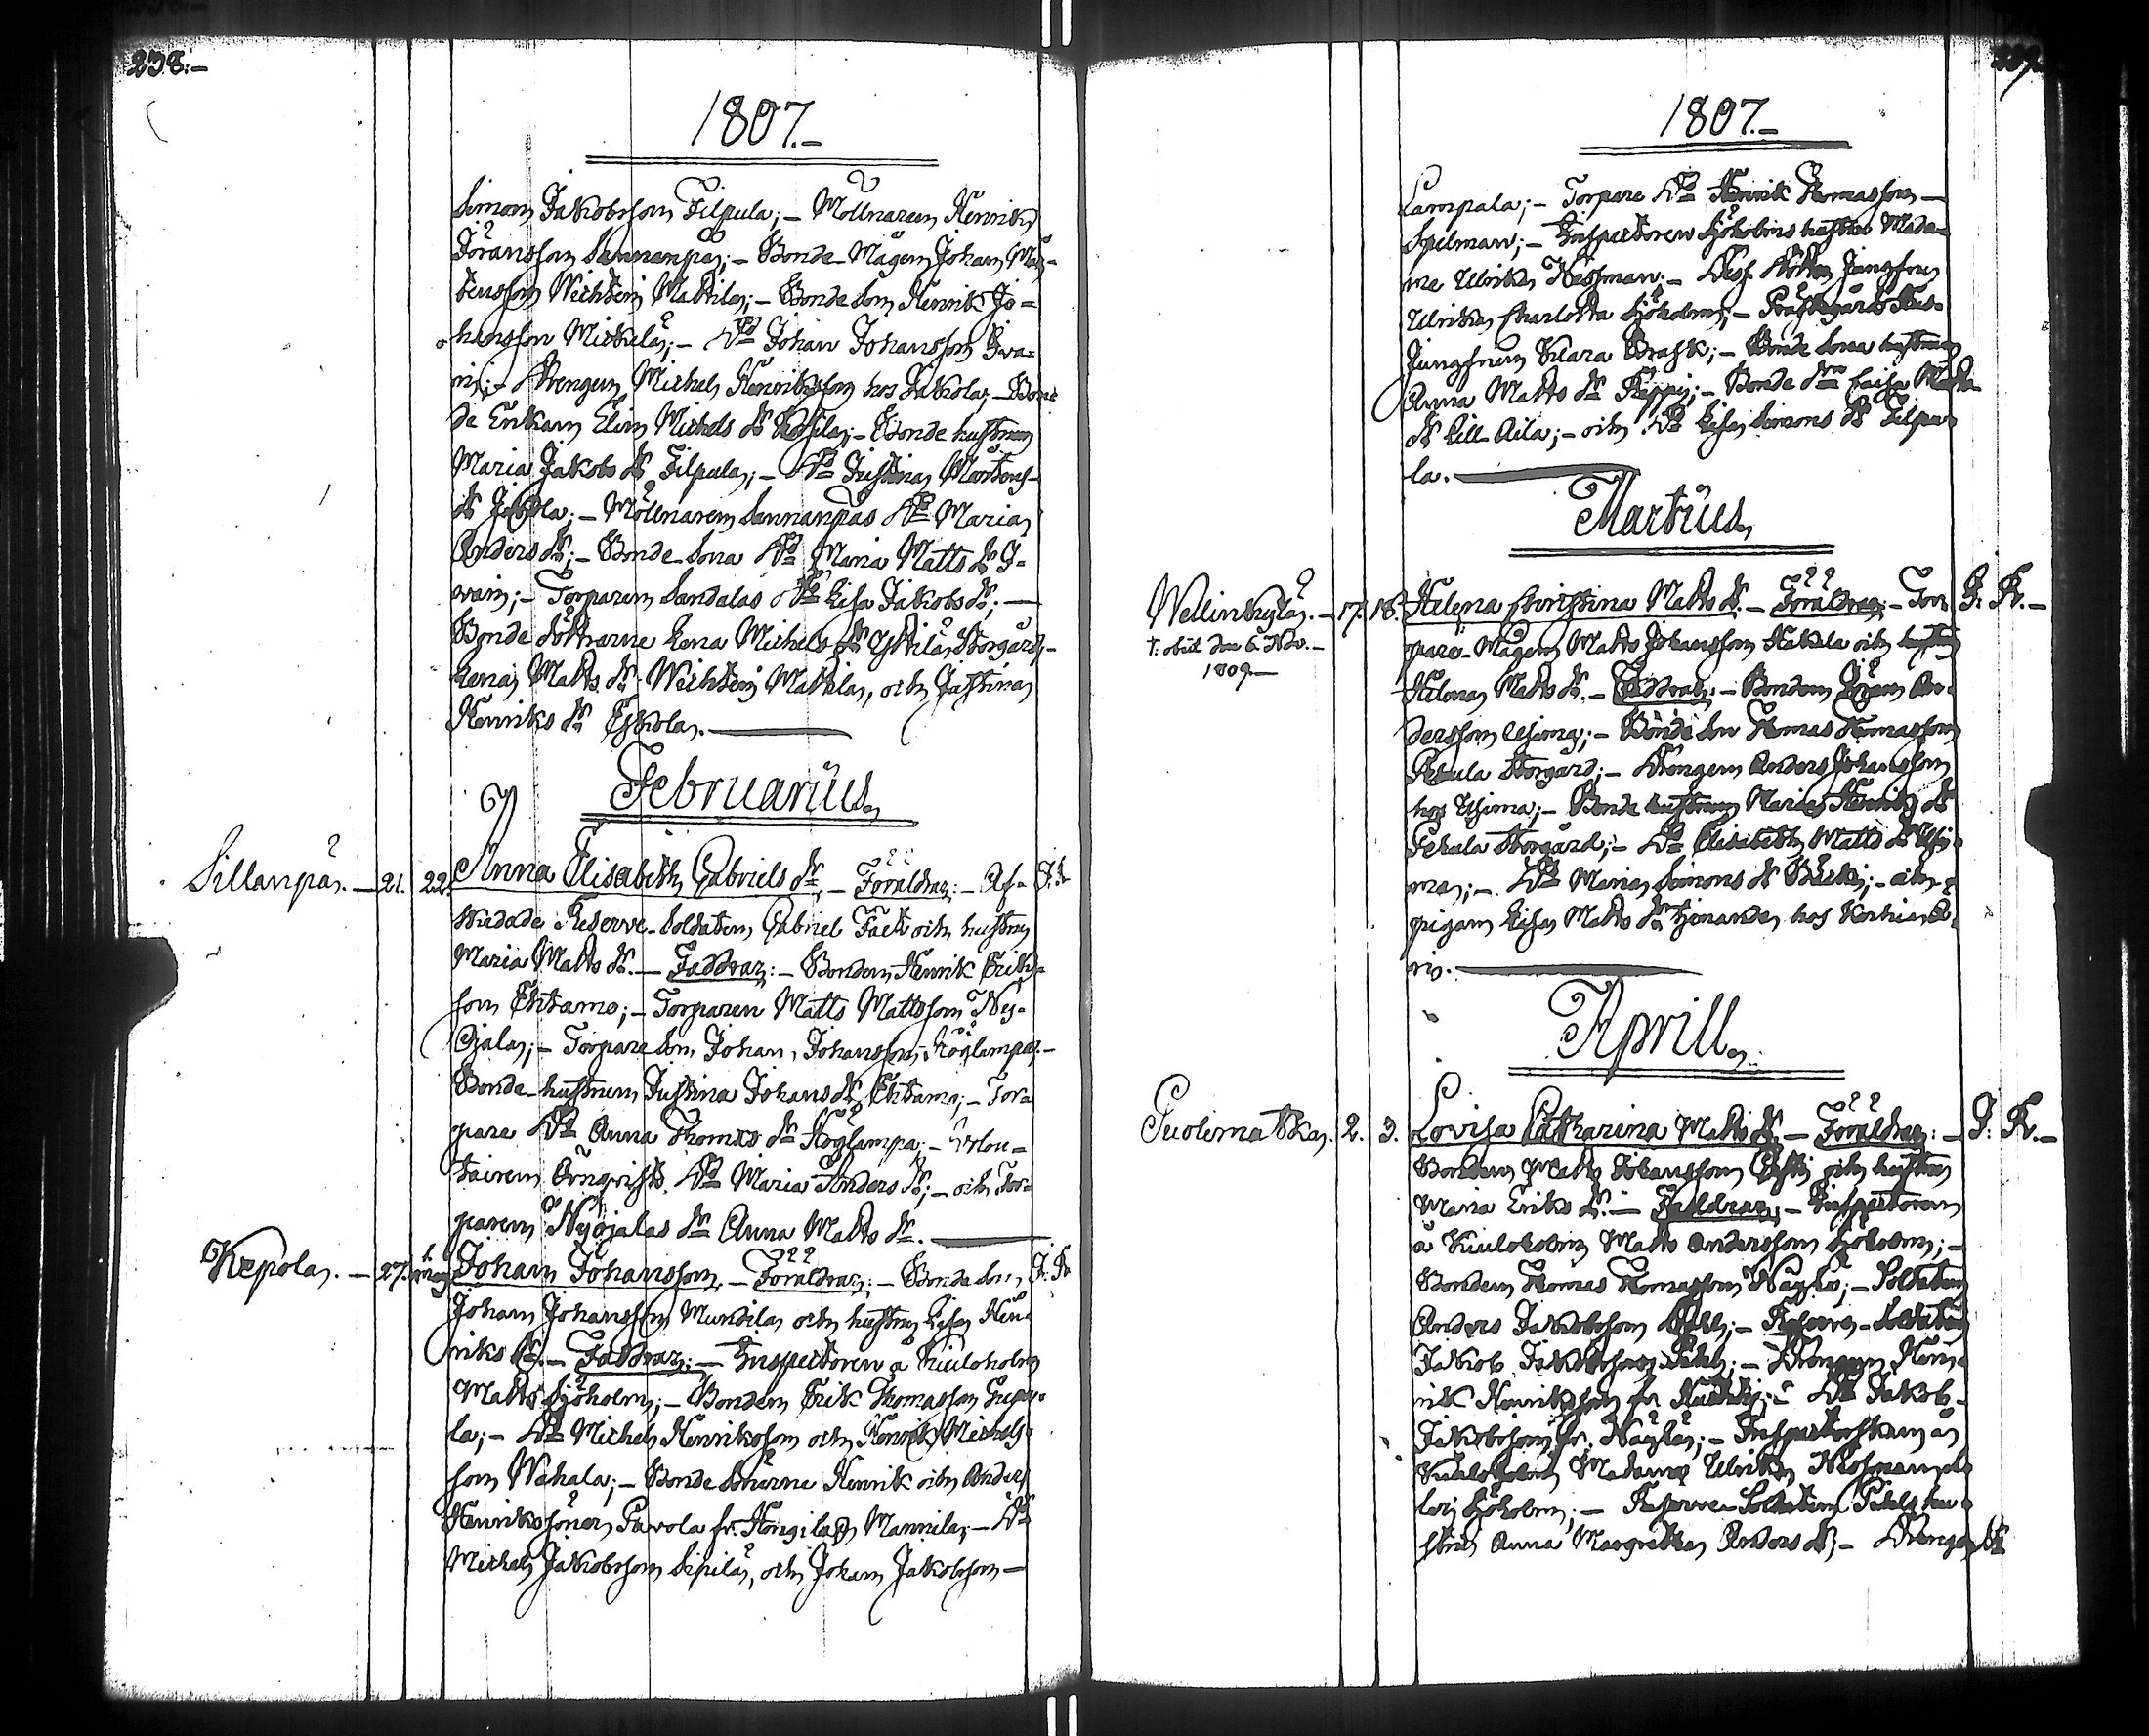 238.-
1807.-
Simon Jakobsson Filpula; - Möllnaren Henrik
Göransson Sannanpä; - Bonde-Mågen Johan Mår-
tensson Wichteri Mattila; - Bonde Son Henrik Jo-
hansson Mickilä; - D:o Johan Johansson Iva-
ri; - Drengen Michel Henriksson hos Jakola; - Bon-
de Enkan Elin Michels D:r Kossila; - Bonde hustrun
Maria Jakobs D:r Filpula; - D:o Justina Mårtens-
D:r Jakola; - Möllnaren Sannanpäs D:o Maria
Anders D:r; - Bonde-Sona D:o Maria Matts D:r I-
vari; - Torparen Sandalas D:o Lisa Jakobs D:r; -
Bonde Döttrarne Lena Michels D:r Yskilä Storgård,
Lena Matts D:r Wichteri Mattila, och Justina
Henriks D:r Eskola.
Februarius
Sillanpä. - 21. 22. Anna Elisabeth Gabriels D:r, - Föräldrar: - Af- J. Fr.
skedade Reserve-Soldaten Gabriel Fält och hustrun
Maria Matts D:r. - Faddrar: - Bonden Henrik Eriks-
son Ehtamo; - Torparen Matts Mattsson Ny-
Ojala; - Torpare Son Johan Johansson Höglampa; -
Bonde-hustrun Justina Johans D:r Ehtamo; - Tor-
pare D:o Anna Thomas D:r Höglampa; - Volon-
tairen Örnqvists D:o Maria Anders D:r; - och Tor-
paren Nyojalas D:r Anna Matts D:r.
Kepola. - 27. Johan Johansson. - Föräldrar: - Bonde Son J. Fr.
Johan Johansson Mundila och hustrun Lisa Hen-
riks D:r. - Faddrar: - Inspectoren å Kuuloholm
Matts Sjöholm; - Bonden Erik Thomasson
la; - D:o Michel Henriksson och Henrik Michels-
son Wahala; - Bonde Sönerne Henrik och Anders
Henrikssöner Pavola fr. Hongila Mannila; - D:o
Michel Jakobsson Sipilä, och Johan Jakobsson -
239.
1807.-
Lampala; - Torpare D:o Henrik Thomasson -
Spelman; - Inspectoren Sjöholms hustru Mada-
me Ulrika Nessman; - Dess Dotter Jungfrun
Ulrika Charlotta Sjöholm; - Prästegårds Hus-
Jungfrun Klara Brask; - Bonde Sona hustrun
Anna Matts D:r Seppi; - Bonde D:rn Caisa Matts
D:r Lill Aila; - och D:o Lisa Simons D:r Filpu-
la.
Martius
Wellinkylä. - 17. 18. Helena Christina Matts D:r. - Föräldrar: - Tor- J. Fr. -
†: obiit den 6. Nov. -
1809. -
pare-Mågen Matts Johansson Hakala och hustrun
Helena Matts D:r. - Faddrar: - Bonden Göran An-
dersson Uhima; - Bonde Son Thomas Thomasson
Pehula Storgård; - Drengen Anders Johansson
hos Uhima; - Bonde hustrun Maria Henriks D:r
Pehula Storgård; - D:o Elisabeth Matts D:r Uhi-
ma; - D:o Maria Simons D:r Bäcki; - och
pigan Lisa Matts D:r tjenande hos Korkia
ri.
Aprill
Puolimatka. 2. 3. Lovisa Catharina Matts D:r. - Föräldrar: - J. Fr. -
Bonden Matts Johansson och hustrun
Maria Eriks D:r. - Faddrar; - Inspectoren
å Kuuloholm Matts Andersson Sjöholm; -
Bonden Thomas Thomasson Näyhö; - Soldaten
Anders Jakobsson; - Reserve-Soldaten
Jakob Jakobsson; - Drengen Hen-
rik Henriksson fr.; - D:o Jakob
Jakobsson fr. Näyhä; - Inspectorskan å
Kuuloholm Madame Ulrika Nessman
Sjöholm; - Reserve Soldaten hu-
strun Anna Margretha Anders D:r; - Drengen